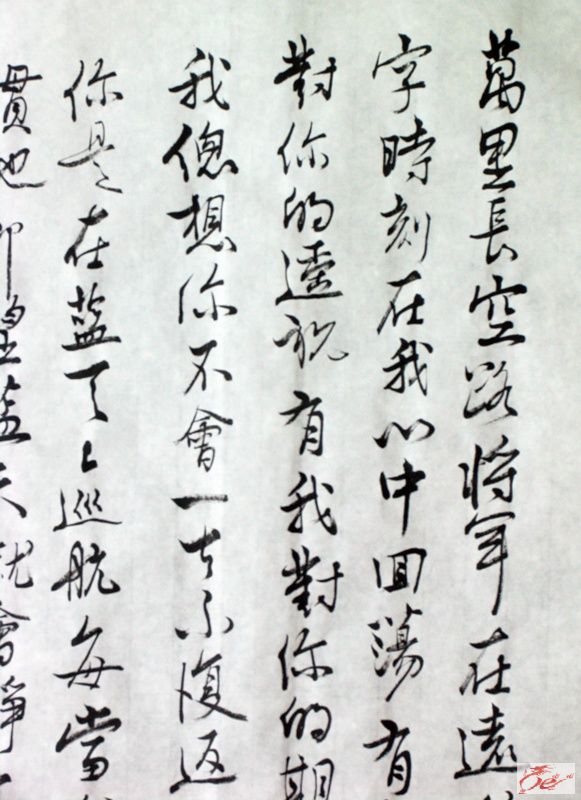 萬里長空路將軍在遠
字時刻在我心中回蕩有
對你的遙祝有我對你的期
我總想你不會一去不復返
你是在藍天上巡航每當
貫也 藍天就會爭